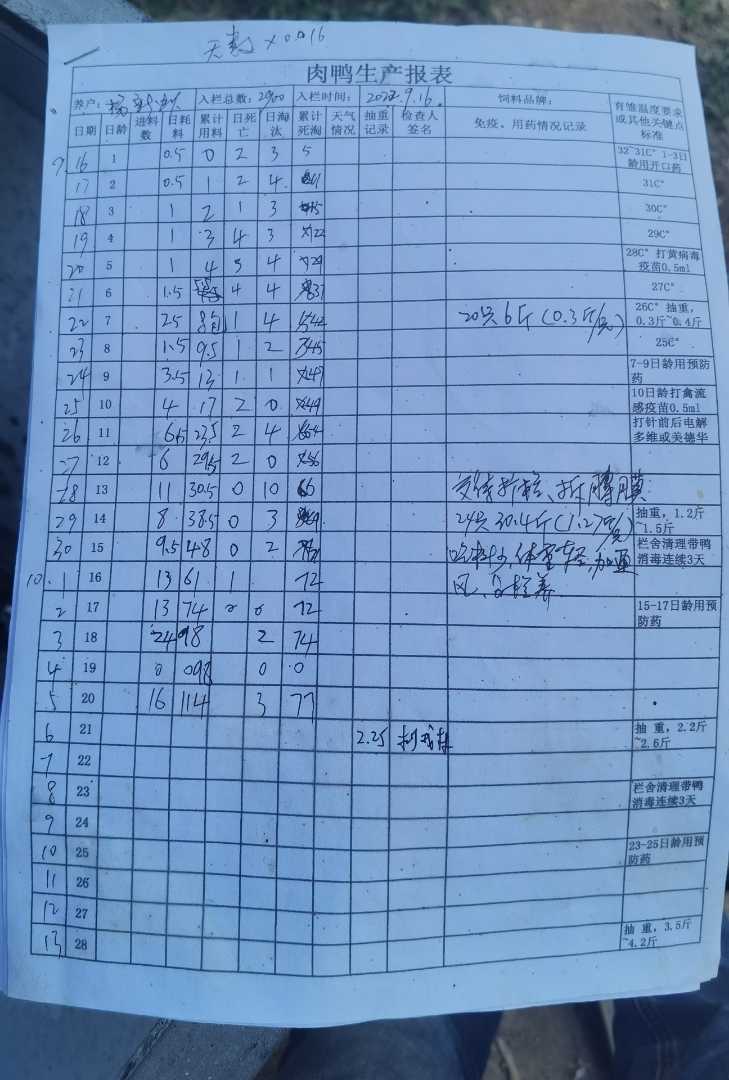 天数×0.016
肉鸭生产报表
养户: 入栏总数: 2900 入栏时间: 2022.9.16. 饲料品牌: 有雏温度要求或其他关键点标准
日期 日龄 进料数 日耗料 累计用料 日死亡 日淘汰 累计死淘 天气情况 抽重记录 检查人签名 免疫、用药情况记录
9.16 1 0.5 0 2 3 5 32~31C° 1-3日龄用开口药
17 2 0.5 1 2 4 11 31C°
18 3 1 2 1 3 15 30C°
19 4 1 3 4 3 22 29C°
20 5 1 4 3 4 29 28C° 打黄病毒疫苗0.5ml
21 6 1.5 4 4 37 27C°
22 7 25 8 1 4 42 20只6斤(0.3斤/只) 26C° 抽重，0.3斤~0.4斤
23 8 1.5 9.5 1 2 45 25C°
24 9 3.5 13 1 1 47 7-9日龄用预防药
25 10 4 17 2 0 49 10日龄打禽流感疫苗0.5ml
26 11 6.5 23.5 2 4 54 打针前后电解多维或美德华
27 12 6 29.5 2 0 56
28 13 11 30.5 0 10 66
29 14 8 38.5 0 3 69 24只30.4斤(1.27斤/只) 抽重，1.2斤~1.5斤
30 15 9.5 48 0 2 71 吃料少,体重轻,加通 栏舍清理带鸭消毒连续3天
10.1 16 13 61 1 72 风、分栏养
2 17 13 74 0 0 72 15-17日龄用预防药
3 18 24 98 2 74
4 19 0 098 0 0
5 20 16 114 3 77
6 21 2.25 抽 重，2.2斤~2.6斤
7 22
8 23 栏舍清理带鸭消毒连续3天
9 24
10 25 23-25日龄用预防药
11 26
12 27
13 28 抽 重，3.5斤~4.2斤